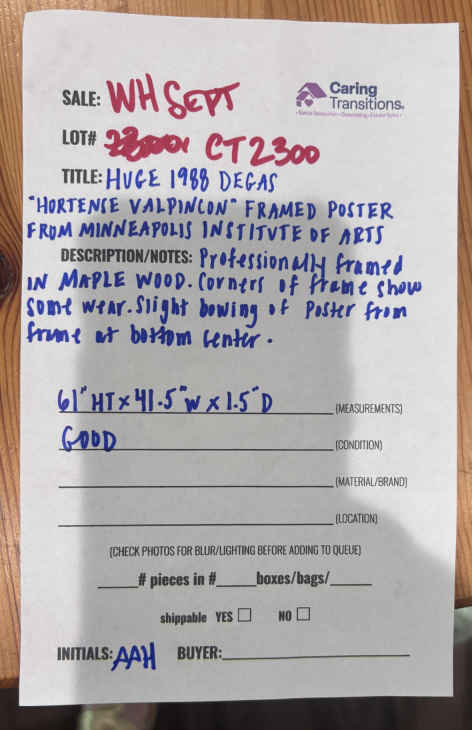 SALE: WH SEPT
Caring
Transitions®
LOT# CT2300
TITLE: HUGE 1988 DEGAS
"HORTENSE VALPINCON" FRAMED POSTER
FROM MINNEAPOLIS INSTITVTE OF ARTS
DESCRIPTION/NOTES: Professionally framed
IN MAPLE WOOD. Corners of frame show
some wear. Slight bowing of Poster from
frame at bottom center.
61" HT x 41.5" W x 1.5" D (MEASUREMENTS)
GOOD (CONDITION)
(MATERIAL/BRAND)
(LOCATION)
(CHECK PHOTOS FOR BLUR/LIGHTING BEFORE ADDING TO QUEUE)
# pieces in # boxes/bags/
shippable YES NO
INITIALS: AAH BUYER: